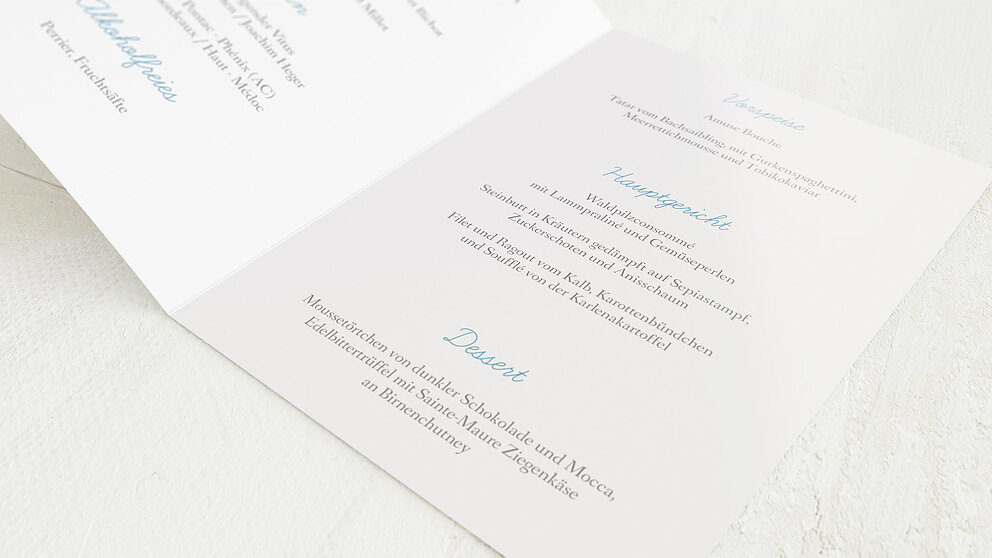 Müller
Bischof
Vitus
/ Joachim Heger
Pontac - Phénix (AC)
/ Haut - Médoc
Alkoholfreies
Perrier, Fruchtsäfte
Vorspeise
Amuse Bouche
Tatar vom Bachsaibling, mit Gurkenspaghettini,
Meerrettichmousse und Tobikokaviar
Hauptgericht
Waldpilzconsommé
mit Lammpraliné und Gemüseperlen
Steinbutt in Kräutern gedämpft auf Sepiastampf,
Zuckerschoten und Anisschaum
Filet und Ragout vom Kalb, Karottenbündchen
und Soufflé von der Karlenakartoffel
Dessert
Moussetörtchen von dunkler Schokolade und Mocca,
Edelbittertrüffel mit Sainte-Maure Ziegenkäse
an Birnenchutney